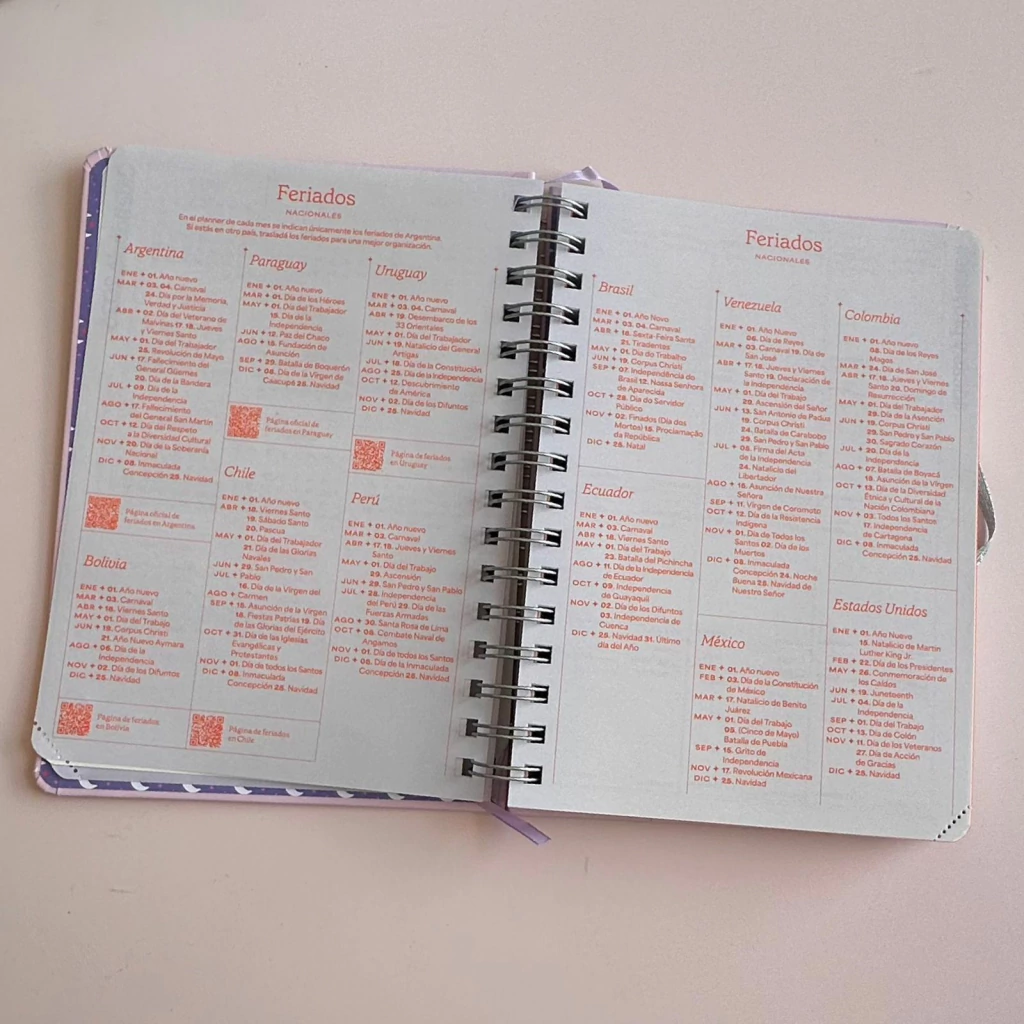 Feriados
NACIONALES
En el planner de cada mes se indican únicamente los feriados de Argentina.
Si estás en otro país, trasladá los feriados para una mejor organización.
Argentina
ENE + 01. Año nuevo
MAR + 03. 04. Carnaval
24. Día por la Memoria,
Verdad y Justicia
ABR + 02. Día del Veterano de
Malvinas 17. 18. Jueves
y Viernes Santo
MAY + 01. Día del Trabajador
25. Revolución de Mayo
JUN + 17. Fallecimiento del
General Güemes
20. Día de la Bandera
JUL + 09. Día de la
Independencia
AGO + 17. Fallecimiento
del General San Martín
OCT + 12. Día del Respeto
a la Diversidad Cultural
NOV + 20. Día de la Soberanía
Nacional
DIC + 08. Inmaculada
Concepción 25. Navidad
Página oficial de
feriados en Argentina
Bolivia
ENE + 01. Año nuevo
MAR + 03. Carnaval
ABR + 18. Viernes Santo
MAY + 01. Día del Trabajo
JUN + 19. Corpus Christi
21. Año Nuevo Aymara
AGO + 06. Día de la
Independencia
NOV + 02. Día de los Difuntos
DIC + 25. Navidad
Página de feriados
en Bolivia
Paraguay
ENE + 01. Año nuevo
MAR + 01. Día de los Héroes
MAY + 01. Día del Trabajador
15. Día de la
Independencia
JUN + 12. Paz del Chaco
AGO + 15. Fundación de
Asunción
SEP + 29. Batalla de Boquerón
DIC + 08. Día de la Virgen de
Caacupé 25. Navidad
Página oficial de
feriados en Paraguay
Chile
ENE + 01. Año nuevo
ABR + 18. Viernes Santo
19. Sábado Santo
20. Pascua
MAY + 01. Día del Trabajador
21. Día de las Glorias
Navales
JUN + 29. San Pedro y San
JUL + Pablo
16. Día de la Virgen del
AGO + Carmen
SEP + 15. Asunción de la Virgen
18. Fiestas Patrias 19. Día
de las Glorias del Ejército
OCT + 31. Día de las Iglesias
Evangélicas y
Protestantes
NOV + 01. Día de todos los Santos
DIC + 08. Inmaculada
Concepción 25. Navidad
Página de feriados
en Chile
Uruguay
ENE + 01. Año nuevo
MAR + 03. 04. Carnaval
ABR + 19. Desembarco de los
33 Orientales
MAY + 01. Día del Trabajador
JUN + 19. Natalicio del General
Artigas
JUL + 18. Día de la Constitución
AGO + 25. Día de la Independencia
OCT + 12. Descubrimiento
de América
NOV + 02. Día de los Difuntos
DIC + 25. Navidad
Página de feriados
en Uruguay
Perú
ENE + 01. Año nuevo
MAR + 03. Carnaval
ABR + 17. 18. Jueves y Viernes
Santo
MAY + 01. Día del Trabajo
29. Ascensión
JUN + 29. San Pedro y San Pablo
JUL + 28. Independencia
del Perú 29. Día de las
Fuerzas Armadas
AGO + 30. Santa Rosa de Lima
OCT + 08. Combate Naval de
Angamos
NOV + 01. Día de todos los Santos
DIC + 08. Día de la Inmaculada
Concepción 25. Navidad
Feriados
NACIONALES
Brasil
ENE + 01. Año Novo
MAR + 03. 04. Carnaval
ABR + 18. Sexta-Feira Santa
21. Tiradentes
MAY + 01. Día do Trabalho
JUN + 19. Corpus Christi
SEP + 07. Independência do
Brasil 12. Nossa Senhora
de Aparecida
OCT + 28. Dia do Servidor
Público
NOV + 02. Finados (Dia dos
Mortos) 15. Proclamação
da República
DIC + 25. Natal
Ecuador
ENE + 01. Año nuevo
MAR + 03. Carnaval
ABR + 18. Viernes Santo
MAY + 01. Día del Trabajo
23. Batalla del Pichincha
AGO + 11. Día de la Independencia
de Ecuador
OCT + 09. Independencia
de Guayaquil
NOV + 02. Día de los Difuntos
03. Independencia de
Cuenca
DIC + 25. Navidad 31. Último
día del Año
Venezuela
ENE + 01. Año Nuevo
06. Día de Reyes
MAR + 03. Carnaval 19. Día de
San José
ABR + 17. 18. Jueves y Viernes
Santo 19. Declaración de
la Independencia
MAY + 01. Día del Trabajo
20. Ascensión del Señor
JUN + 13. San Antonio de Padua
19. Corpus Christi
24. Batalla de Carabobo
29. San Pedro y San Pablo
JUL + 05. Firma del Acta
de la Independencia
24. Natalicio del
Libertador
AGO + 15. Asunción de Nuestra
Señora
SEP + 11. Virgen de Coromoto
OCT + 12. Día de la Resistencia
Indígena
NOV + 01. Día de Todos los
Santos 02. Día de los
Muertos
DIC + 08. Inmaculada
Concepción 24. Noche
Buena 25. Navidad de
Nuestro Señor
México
ENE + 01. Año nuevo
FEB + 03. Día de la Constitución
de México
MAR + 17. Natalicio de Benito
Juárez
MAY + 01. Día del Trabajo
05. (Cinco de Mayo)
Batalla de Puebla
SEP + 15. Grito de
Independencia
NOV + 17. Revolución Mexicana
DIC + 25. Navidad
Colombia
ENE + 01. Año nuevo
06. Día de los Reyes
Magos
MAR + 24. Día de San José
ABR + 17. 18. Jueves y Viernes
Santo 20. Domingo de
Resurrección
MAY + 01. Día del Trabajador
29. Día de la Asención
JUN + 19. Corpus Christi
29. San Pedro y San Pablo
30. Sagrado Corazón
JUL + 20. Día de la
Independencia
AGO + 07. Batalla de Boyacá
18. Asunción de la Virgen
OCT + 13. Día de la Diversidad
Étnica y Cultural de la
Nación Colombiana
NOV + 03. Todos los Santos
17. Independencia
de Cartagena
DIC + 08. Inmaculada
Concepción 25. Navidad
Estados Unidos
ENE + 01. Año Nuevo
15. Natalicio de Martin
Luther King Jr.
FEB + 22. Día de los Presidentes
MAY + 26. Conmemoración de
los Caídos
JUN + 19. Juneteenth
JUL + 04. Día de la
Independencia
SEP + 01. Día del Trabajo
OCT + 13. Día de Colón
NOV + 11. Día de los Veteranos
27. Día de Acción
de Gracias
DIC + 25. Navidad